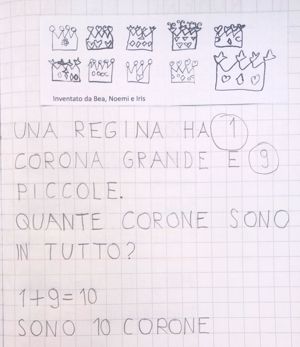 Inventato da Bea, Noemi e Iris
UNA REGINA HA 1
CORONA GRANDE E 9
PICCOLE.
QUANTE CORONE SONO
IN TUTTO?
1+9=10
SONO 10 CORONE